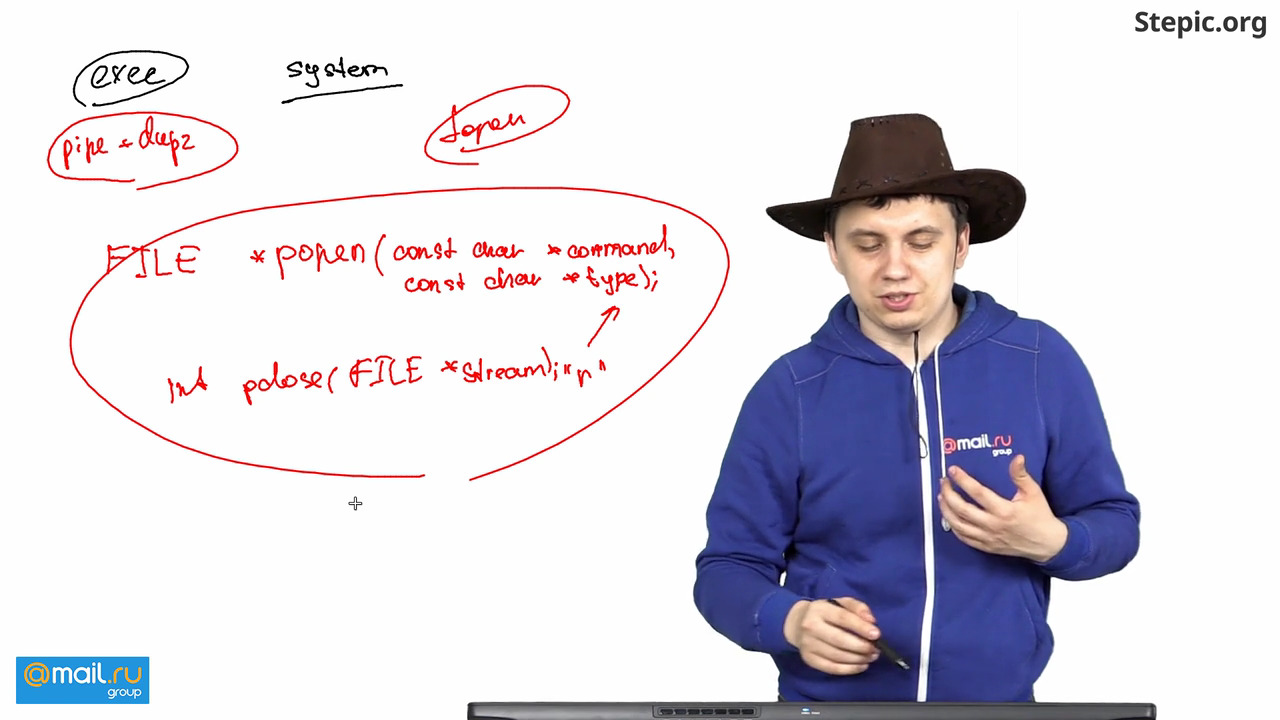 Stepic.org
exec system
pipe + dup2 fopen
FILE *popen(const char *command,
const char *type);
int pclose(FILE *stream); "r"
@mail.ru
group
@mail.ru
group